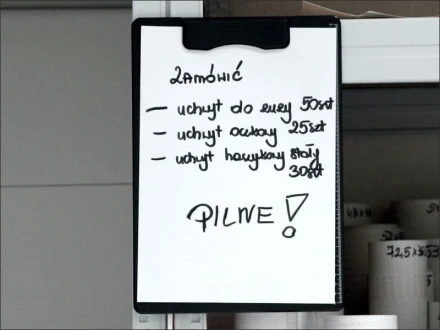 ZAMÓWIĆ
— uchwyt do rury 50szt
— uchwyt oczkowy 25szt
— uchwyt haczykowy stały
30szt
PILNE!
72,5x